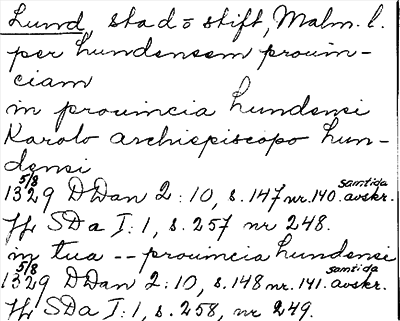 Lund, stad o stift, Malm. l.
per Lundensem prouin-
ciam
in prouincia Lundensi
Karolo archiepiscopo Lun-
densi
5/8 1329 DDan 2:10, s. 147 nr. 140. samtida avskr.
Jfr SDa I:1, s. 257 nr 248.
in tua -- prouincia Lundensi
5/8 1329 DDan 2:10, s. 148 nr. 141. samtida avskr.
Jfr SDa I:1, s. 258, nr 249.